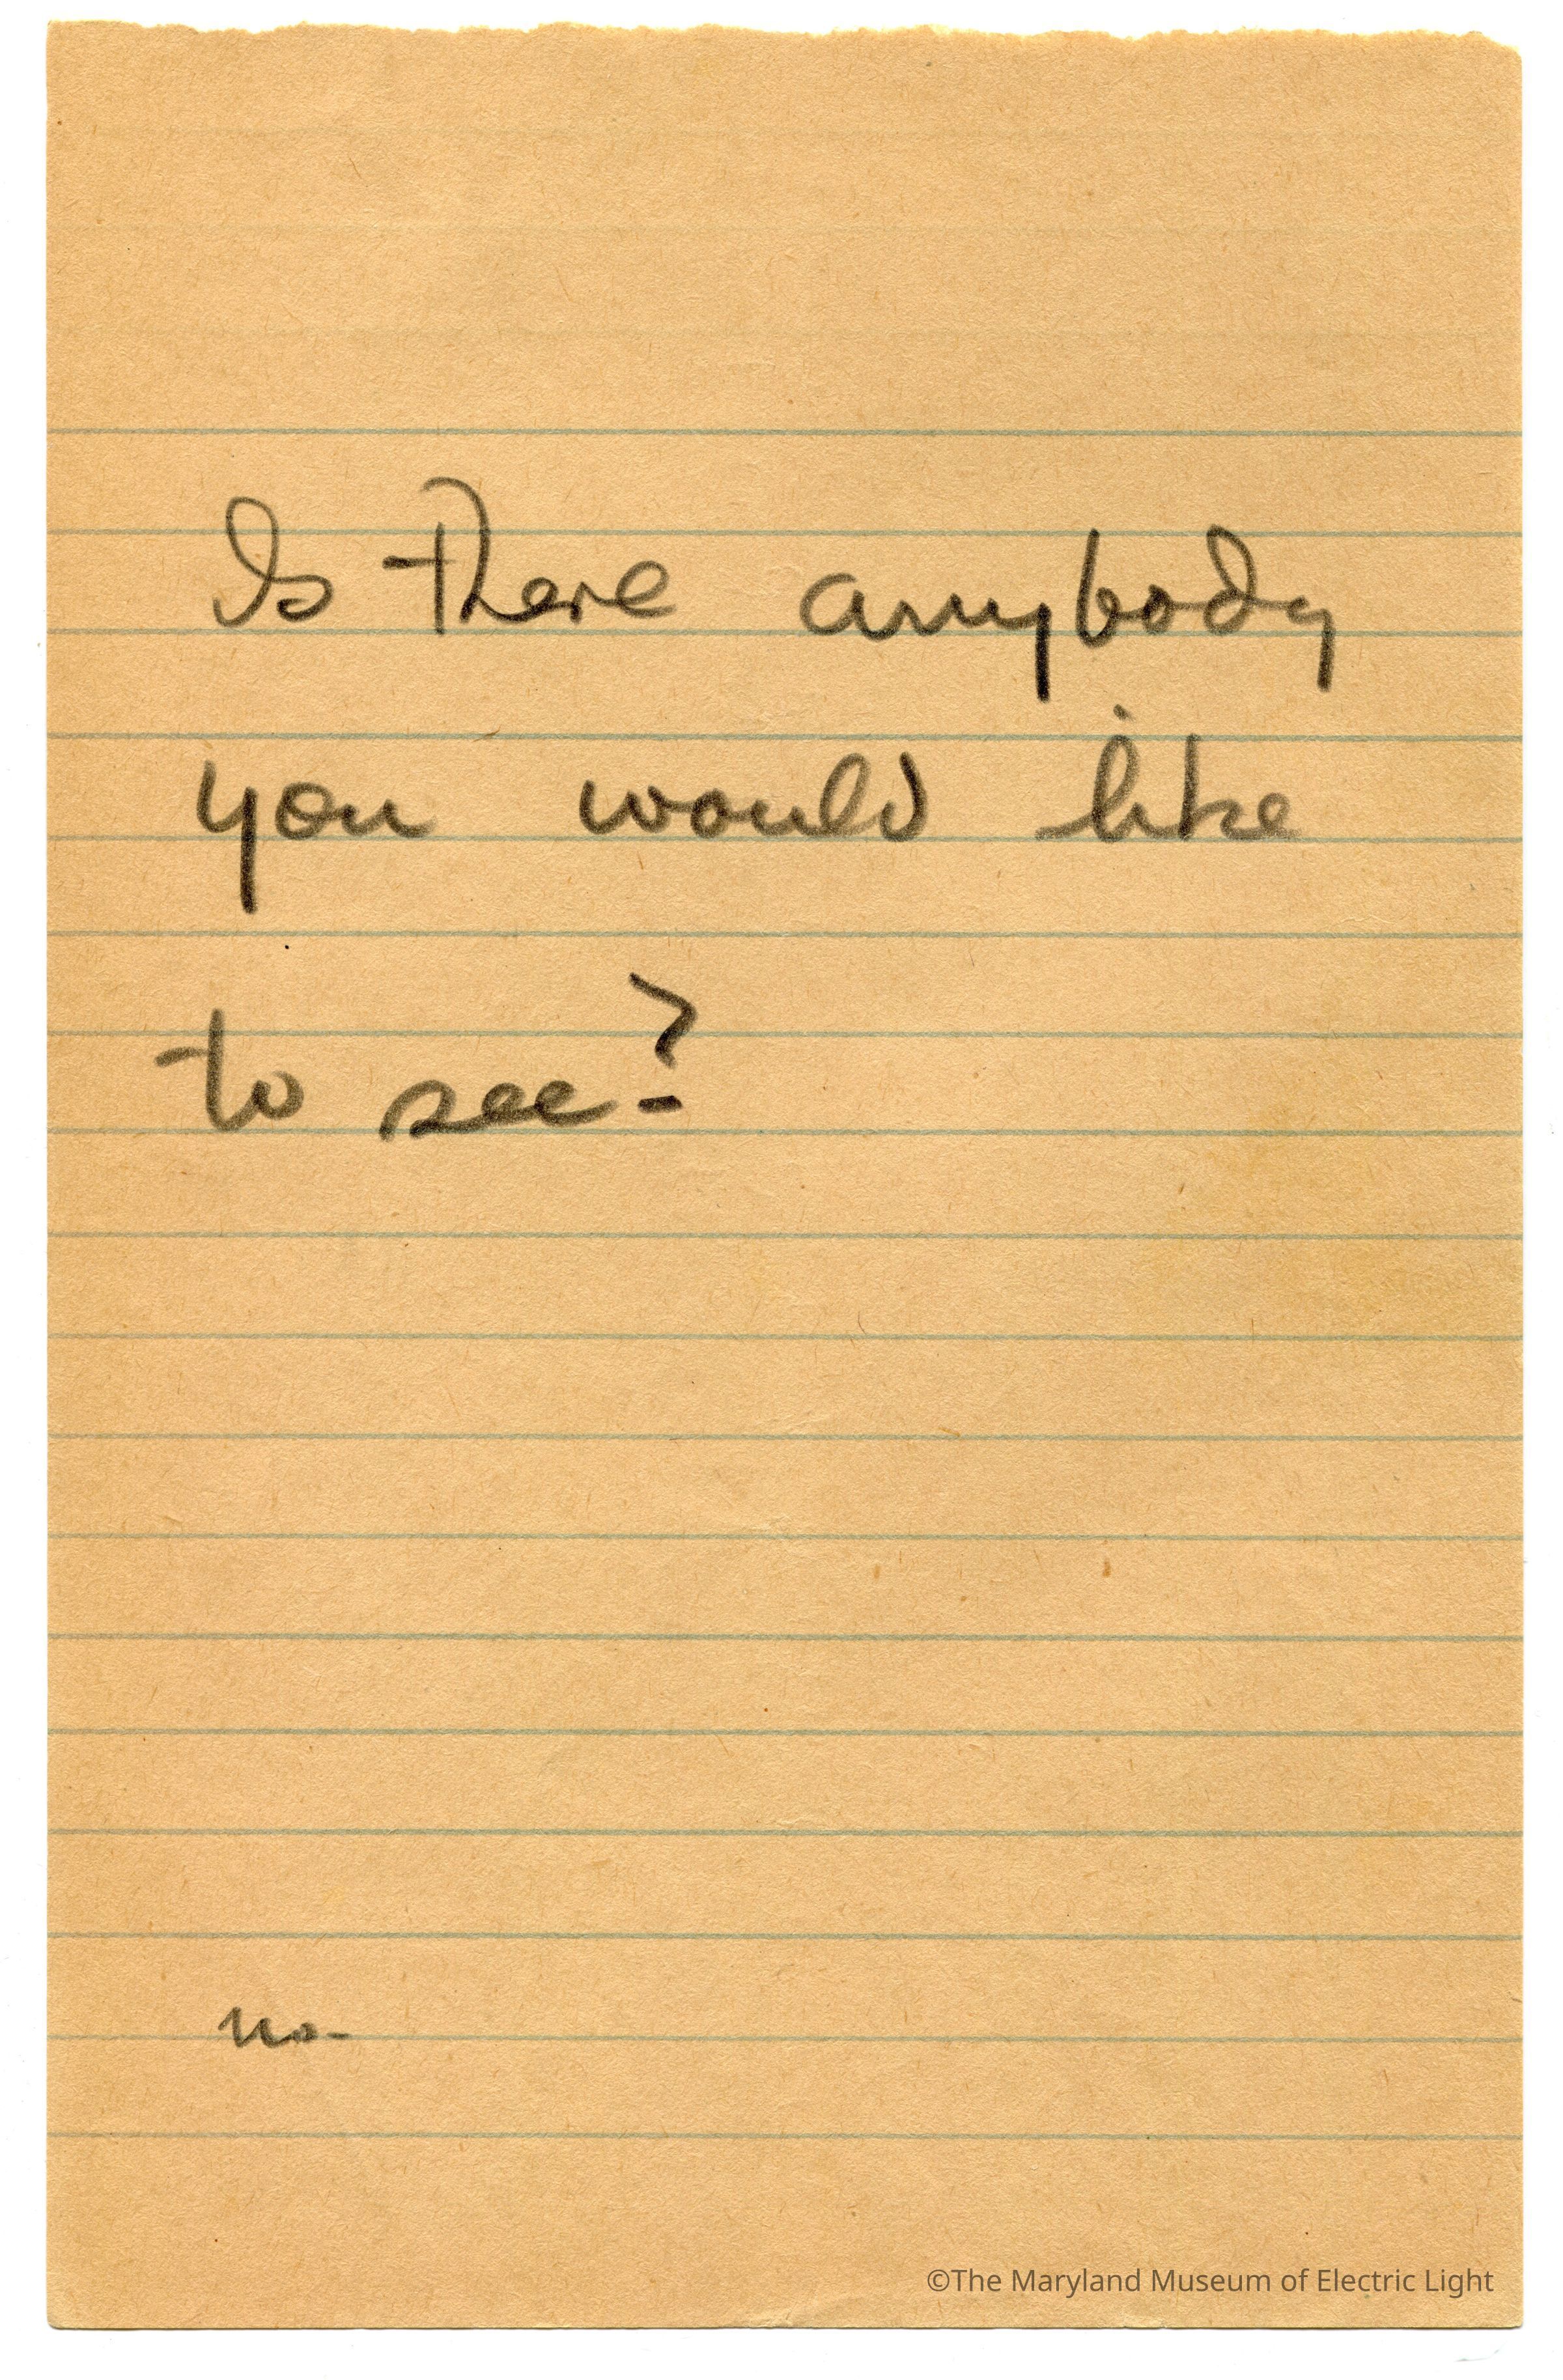 Is there anybody
you would like
to see?
no-
©The Maryland Museum of Electric Light